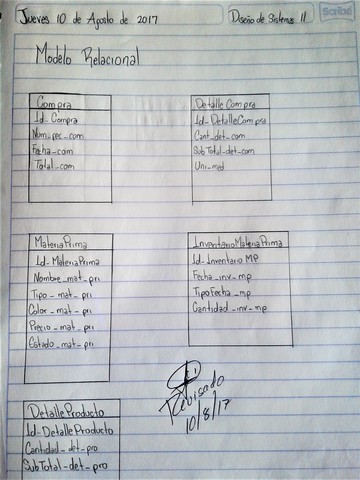 Jueves 10 de Agosto de 2017
Diseño de Sistemas II
Scribe
Modelo Relacional
Compra
Id-Compra
Num-pec-com
Fecha-com
Total-com
DetalleCompra
Id-DetalleCompra
Cant_det-com
SubTotal-det-com
Uni-med
MateriaPrima
Id-MateriaPrima
Nombre_mat-pri
Tipo-mat-pri
Color-mat-pri
Precio-mat-pri
Estado_mat-pri
InventarioMateriaPrima
Id-Inventario MP
Fecha_inv-mp
TipoFecha_mp
Cantidad_inv-mp
Revisado
10/8/17
DetalleProducto
Id-DetalleProducto
Cantidad-det-pro
SubTotal-det-pro